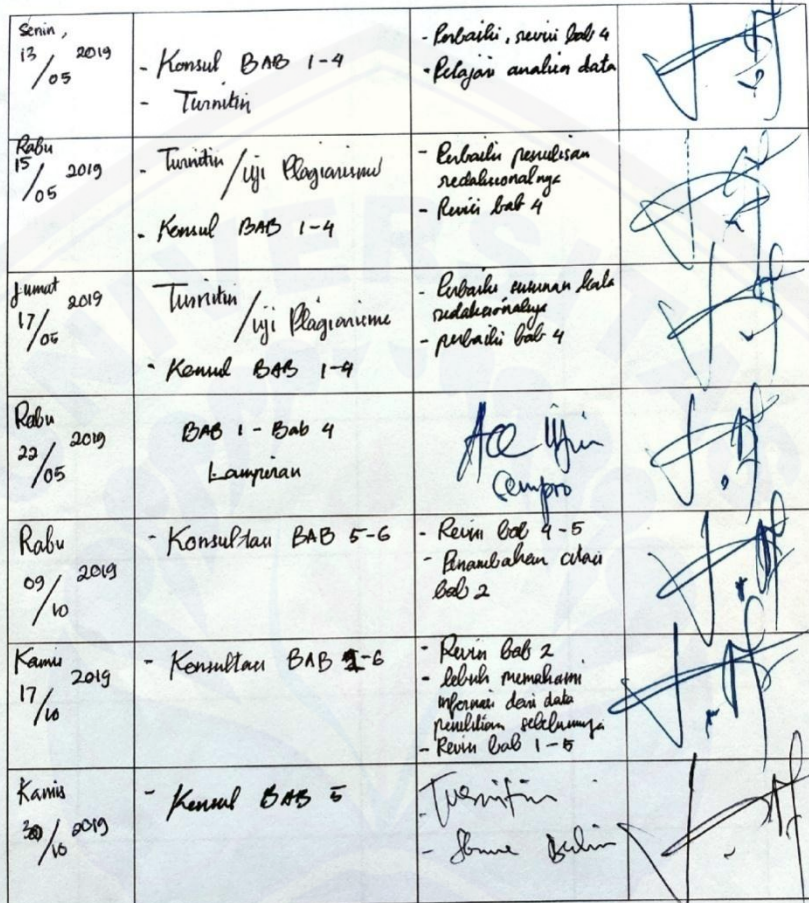 Senin,
13/05 2019
- Konsul BAB 1-4
- Turnitin
- Perbaiki, revisi bab 4
- Pelajari analisa data
Rabu
15/05 2019
- Turnitin / Uji Plagiarisme
- Konsul BAB 1-4
- Perbaiki penulisan
redaksionalnya
- Revisi bab 4
Jumat
17/05 2019
Turnitin / Uji Plagiarisme
- Konsul BAB 1-4
- Perbaiki susunan kata
redaksionalnya
- perbaiki bab 4
Rabu
22/05 2019
BAB 1 - Bab 4
Lampiran
Acc Ujian
Sempro
Rabu
09/10 2019
- Konsultasi BAB 5-6
- Revisi bab 4-5
- Penambahan citasi
bab 2
Kamis
17/10 2019
- Konsultasi BAB -6
- Revisi bab 2
- lebih memahami
informasi dari data
penelitian sebelumnya
- Revisi bab 1-5
Kamis
/10 2019
- Konsul BAB 5
- Turnitin
-
UNIVERSITAS